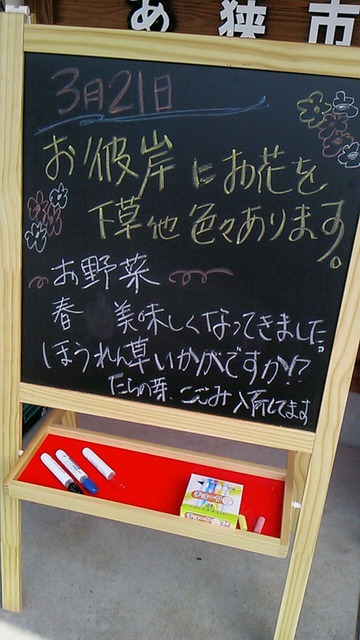 あ 狭 市
3月21日
お彼岸にお花を
下草他色々あります。
お野菜
春 美味しくなってきました。
ほうれん草いかがですか!?
たらの芽、こごみ入荷してます